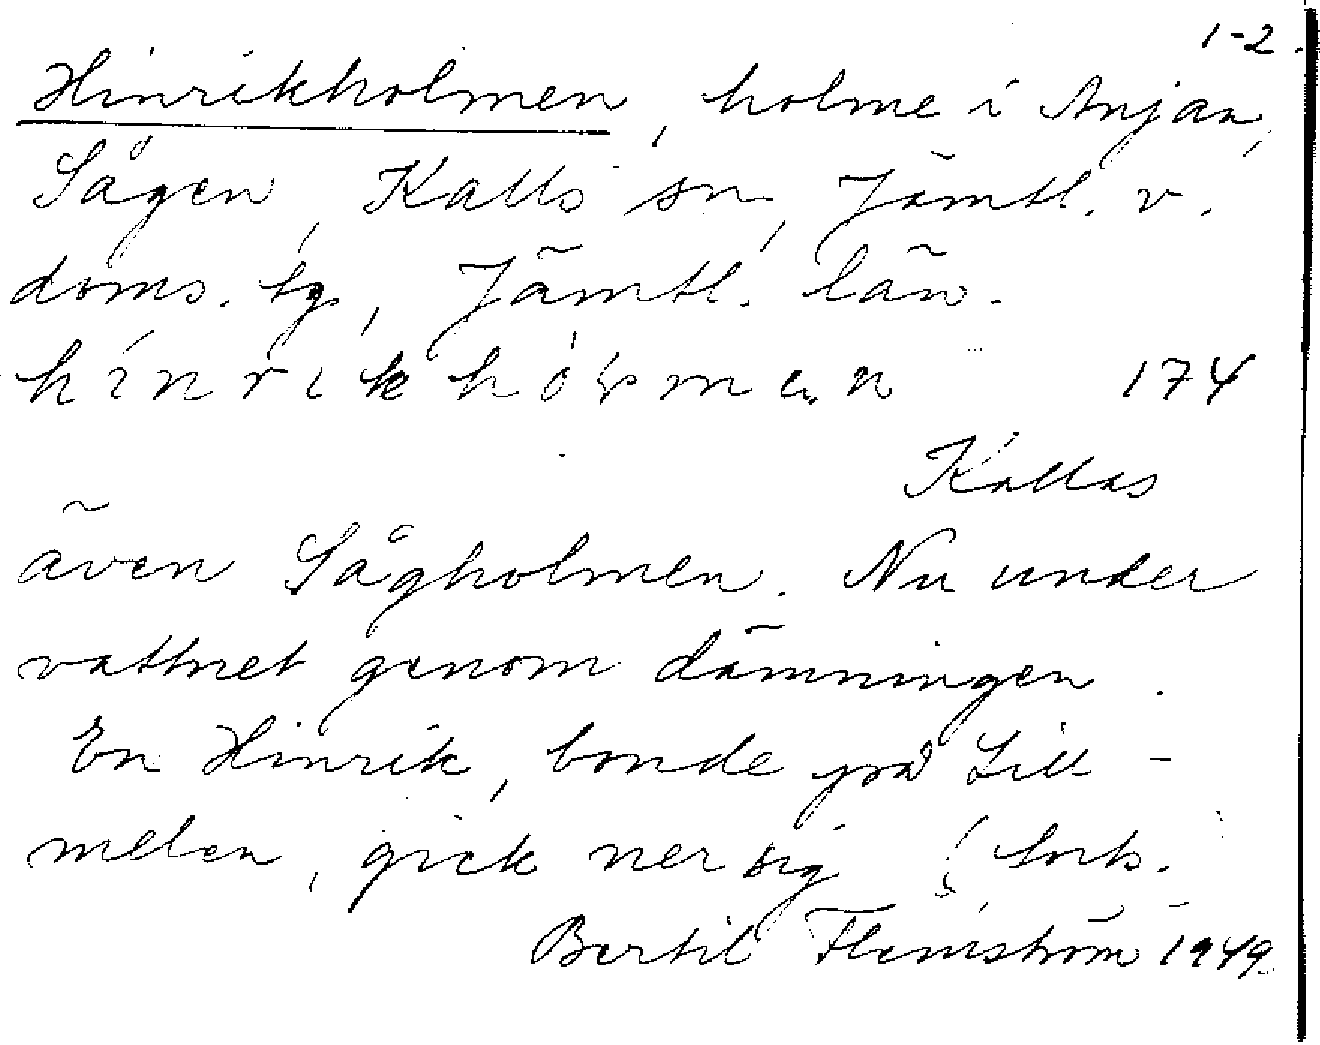 1-2.
Hinrikholmen, holme i Anjan,
Sågen, Kalls sn, Jämtl. v.
doms. tg, Jämtl. län.
174
Kallas
även Sågholmen. Nu under
vattnet genom dämningen.
En Hinrik, bonde på Lill-
melen, gick ner sig (forts.
Bertil Flemström 1949.